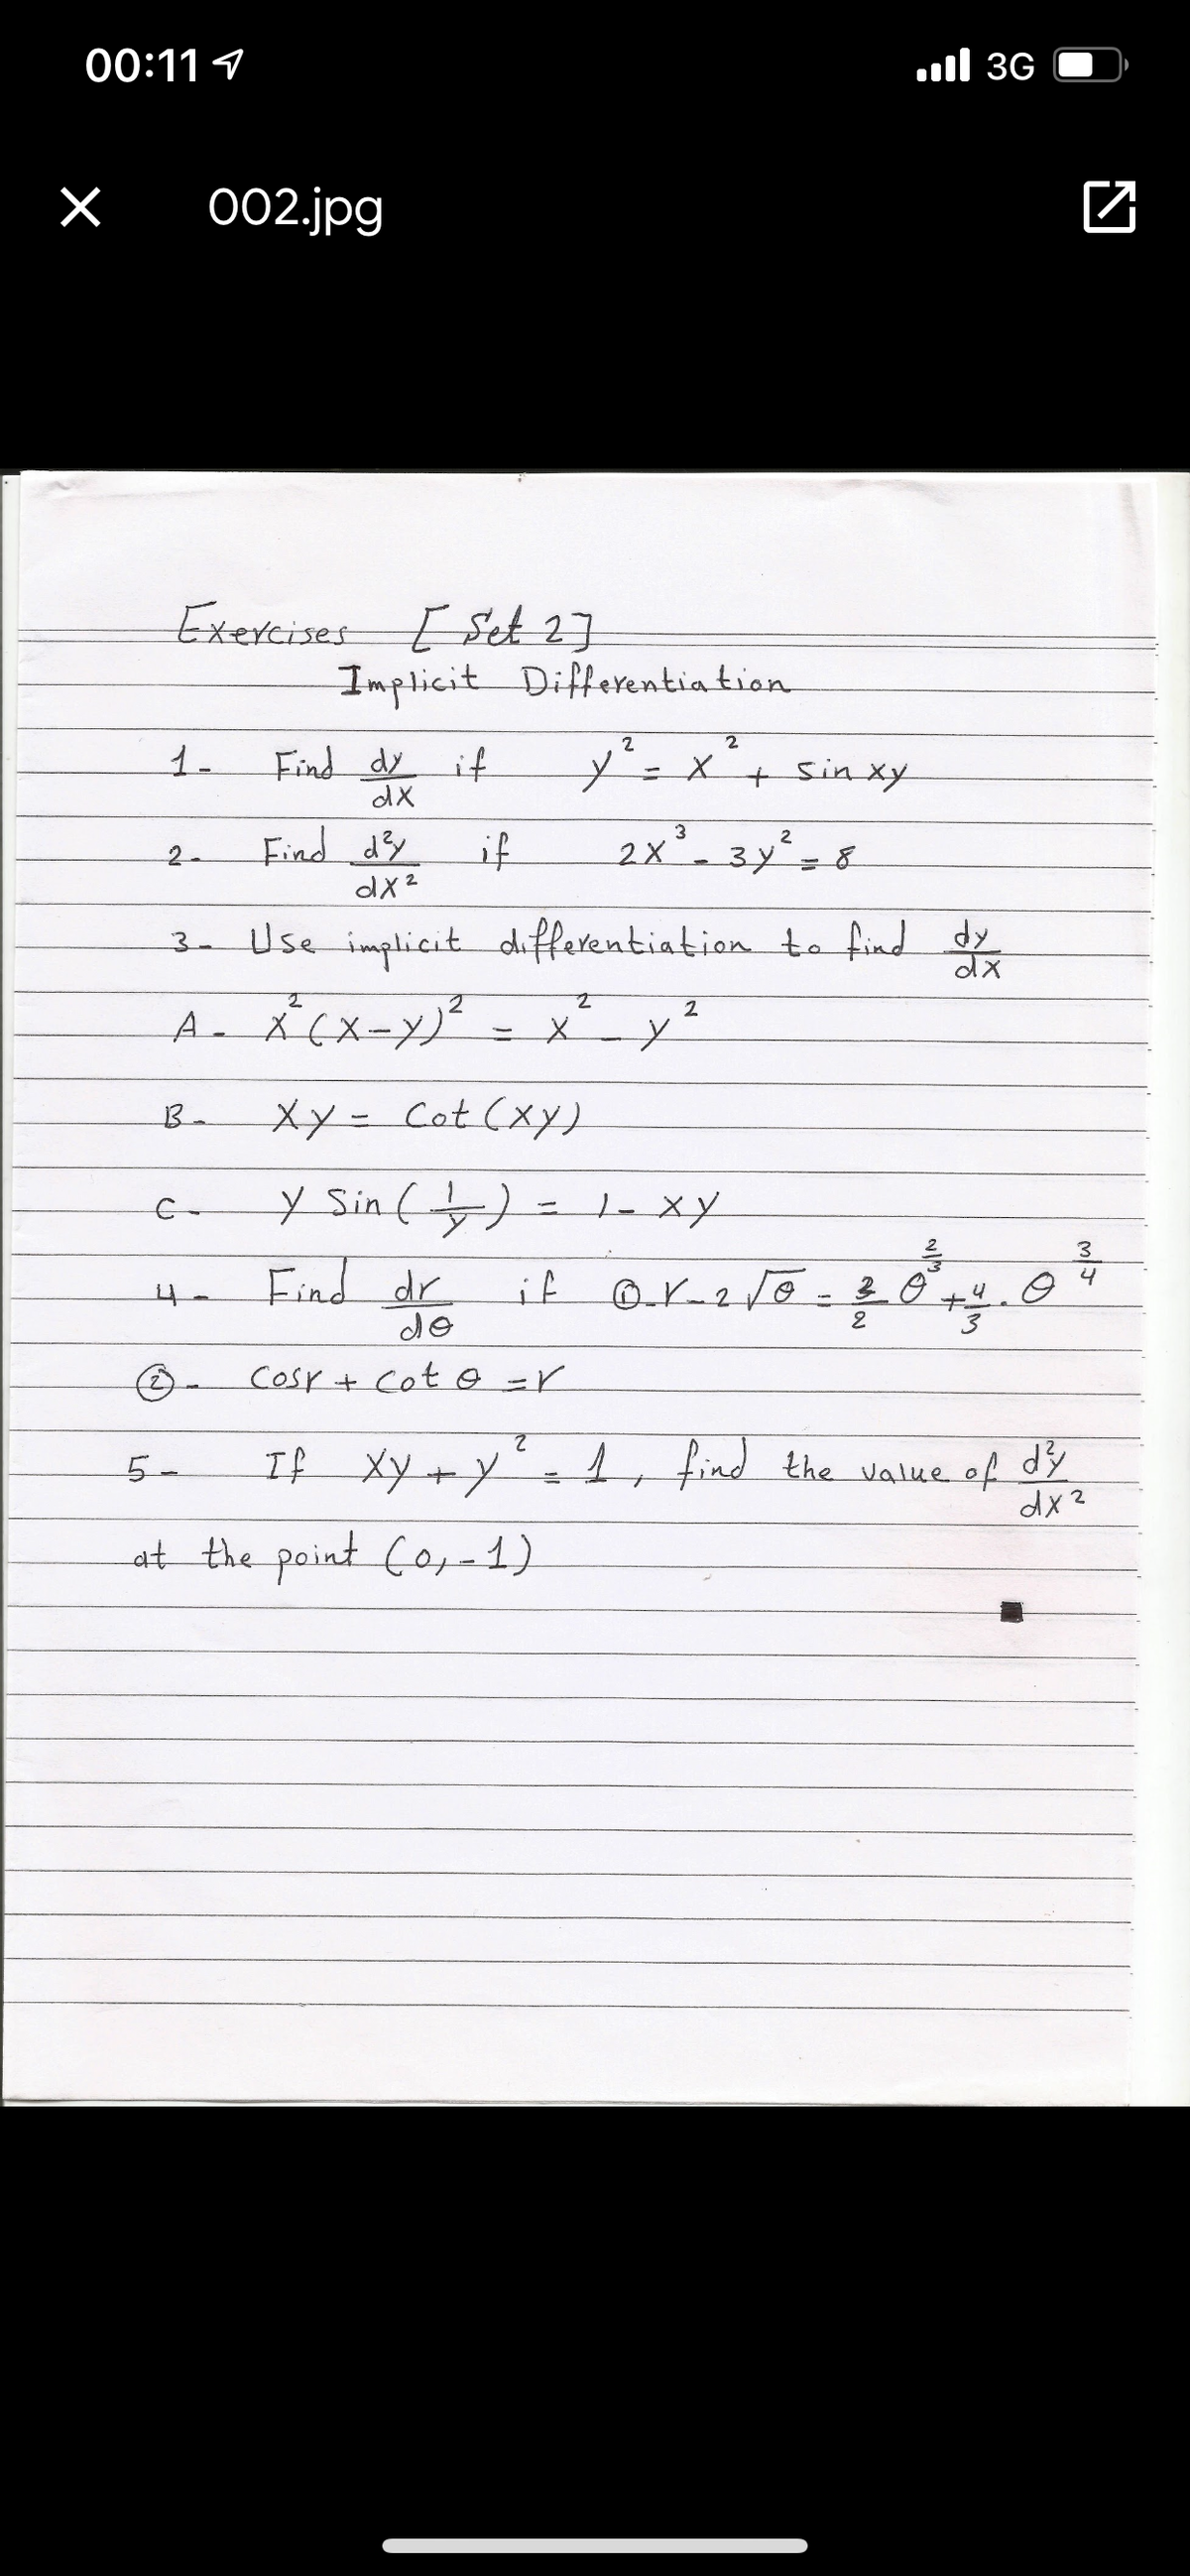 00:11 3G
002.jpg
Exercises [Set 2]
Implicit Differentiation
1- Find dy/dx if y² = x² + sin xy
2- Find d²y/dx² if 2x³ - 3y² = 8
3- Use implicit differentiation to find dy/dx
A- x²(x-y)² = x² - y²
B- xy = cot(xy)
C- y sin(1/y) = 1 - xy
4- Find dr/dθ if ①- r - 2√θ = 3/2 θ^(2/3) + 4/3 . θ^(3/4)
②- cosr + cot θ = r
5- If xy + y² = 1, find the value of d²y/dx²
at the point (0, -1)